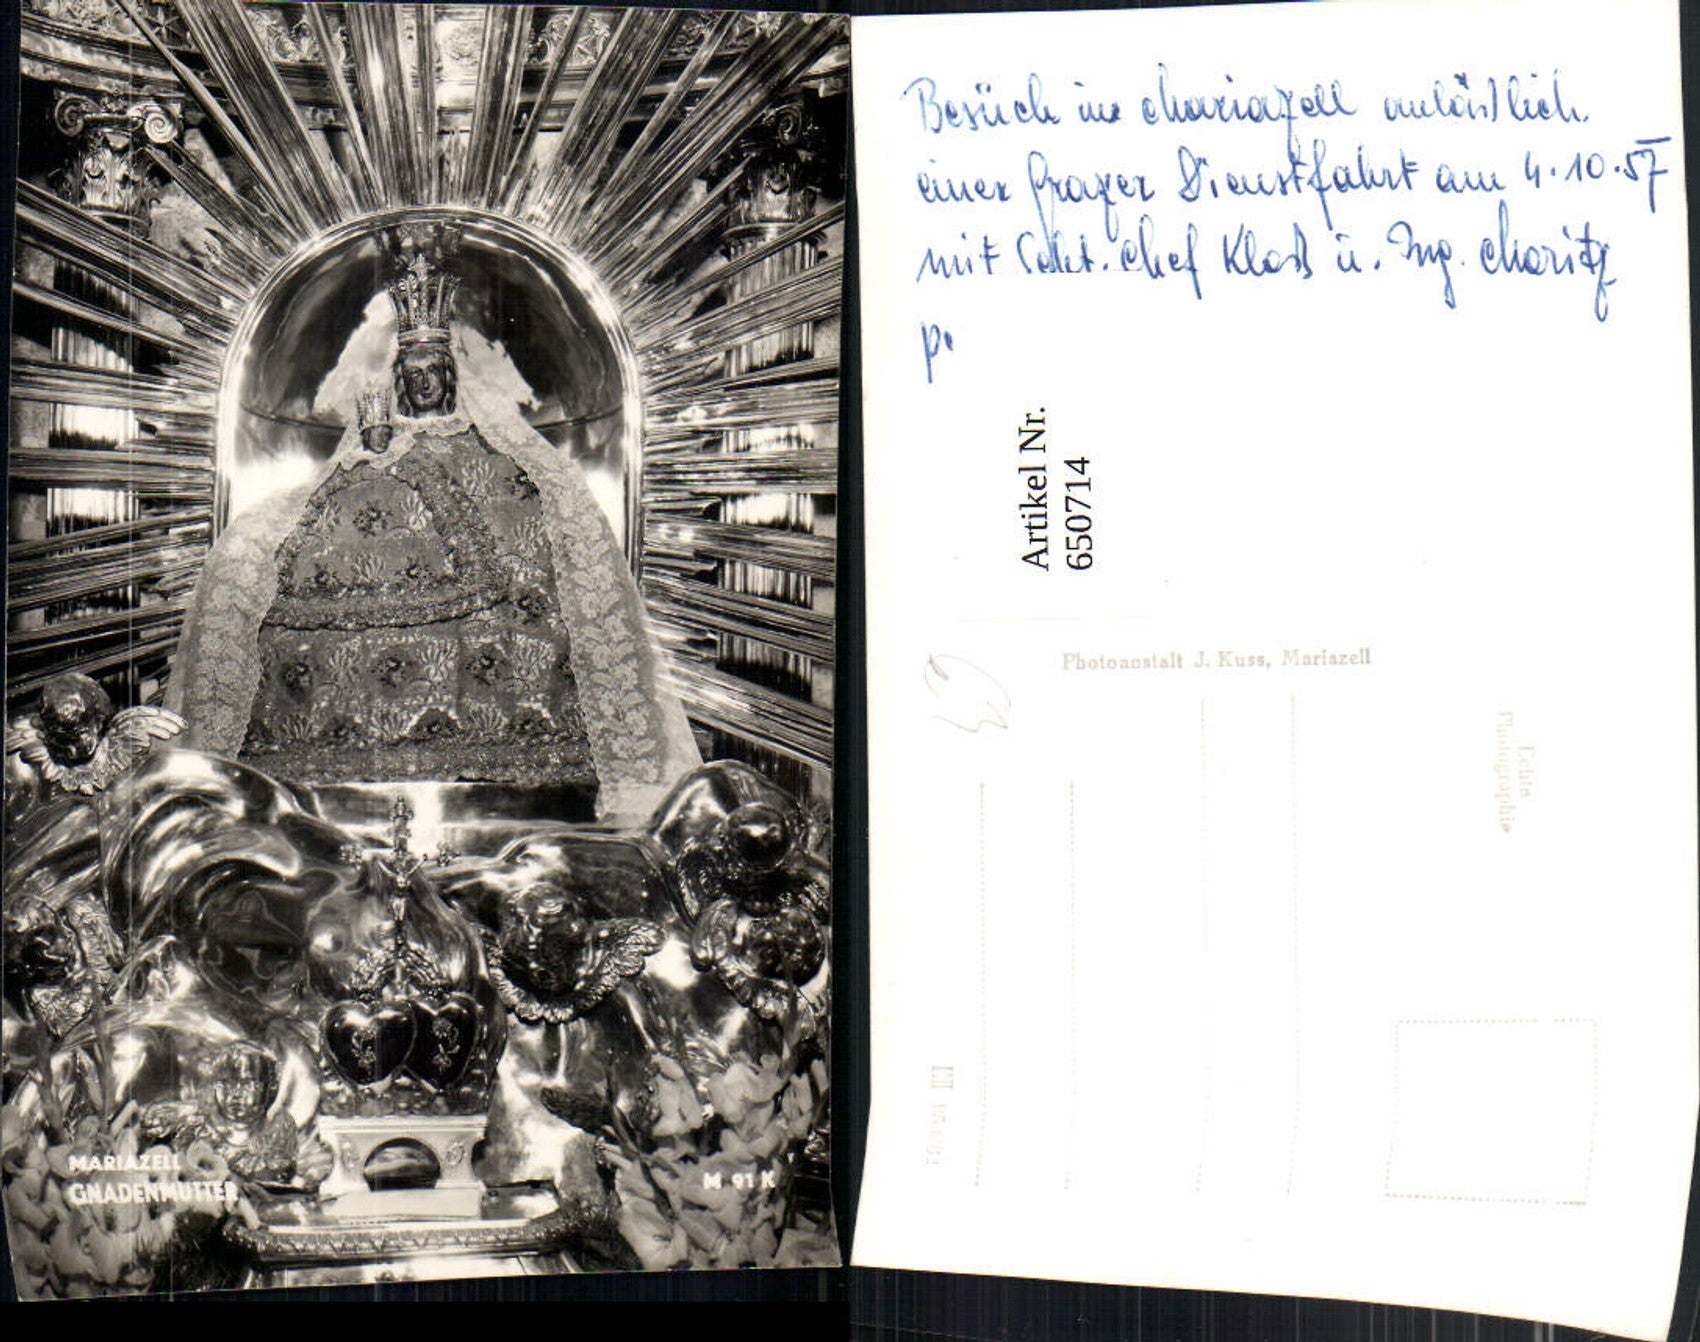 MARIAZELL
GNADENMUTTER
M 91 K
Besuch in Mariazell anläßlich
einer Grazer Dienstfahrt am 4.10.57
mit Sekt. chef Kloß u. Ing. Moritz
p.
Artikel Nr.
6507714
Photoanstalt J. Kuss, Mariazell
Echte
Photographie